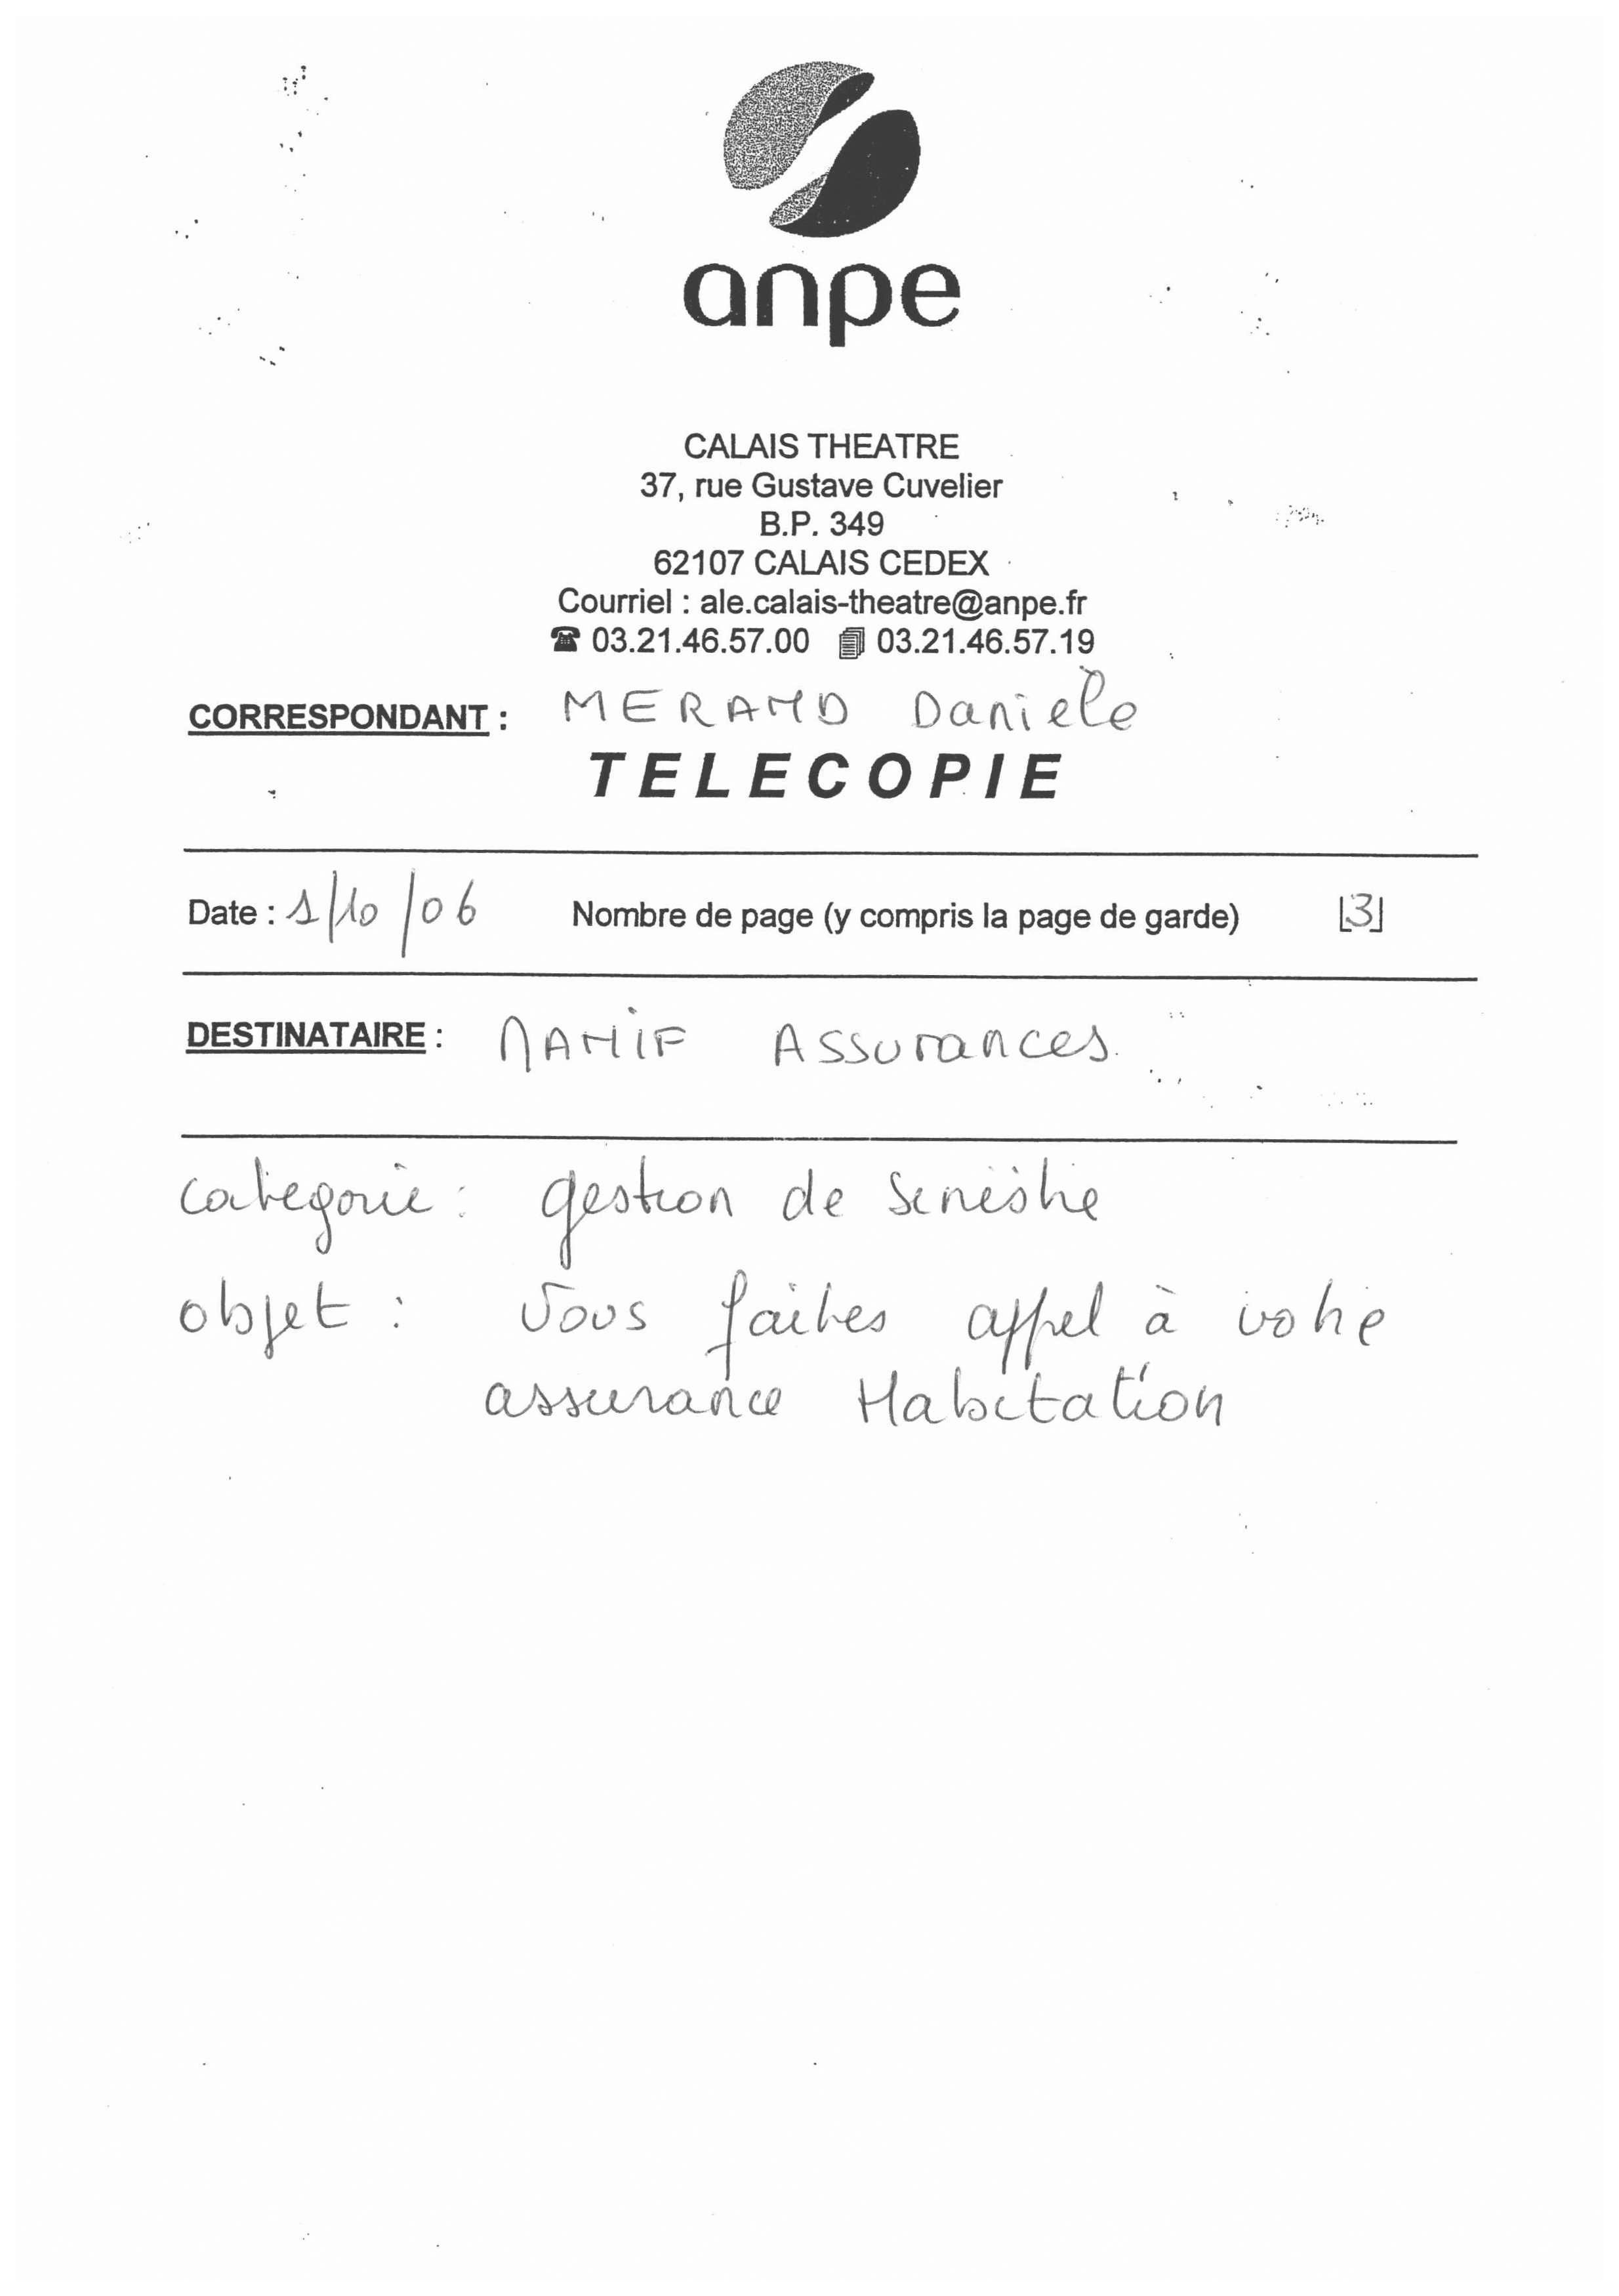 anpe
CALAIS THEATRE
37, rue Gustave Cuvelier
B.P. 349
62107 CALAIS CEDEX
Courriel : ale.calais-theatre@anpe.fr
☎ 03.21.46.57.00 03.21.46.57.19
CORRESPONDANT : MERAND Daniele
TELECOPIE
Date : 1/10/06 Nombre de page (y compris la page de garde) 3
DESTINATAIRE : MAMIF Assurances.
categorie : gestion de sinistre
objet : Vous faites appel à votre
assurance Habitation